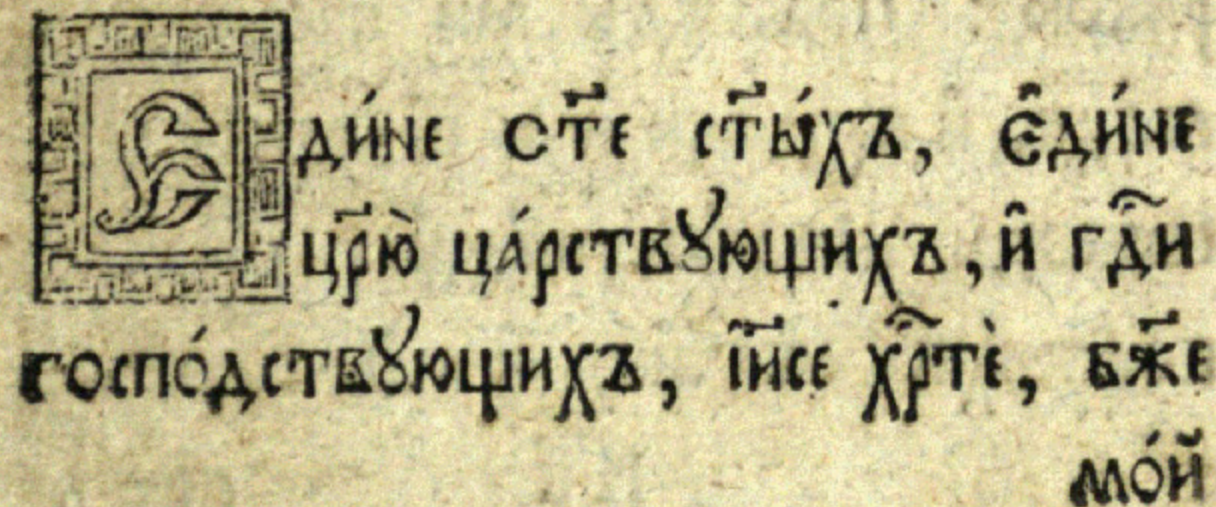 Єди́не ст҃е ст҃ы́хъ, є҆ди́не
цр҃ю̀ ца́рствꙋющихъ, и҆ гдⷭ҇и
госпо́дствꙋющихъ, їи҃се хрⷭ҇тѐ, бж҃е
мо́й